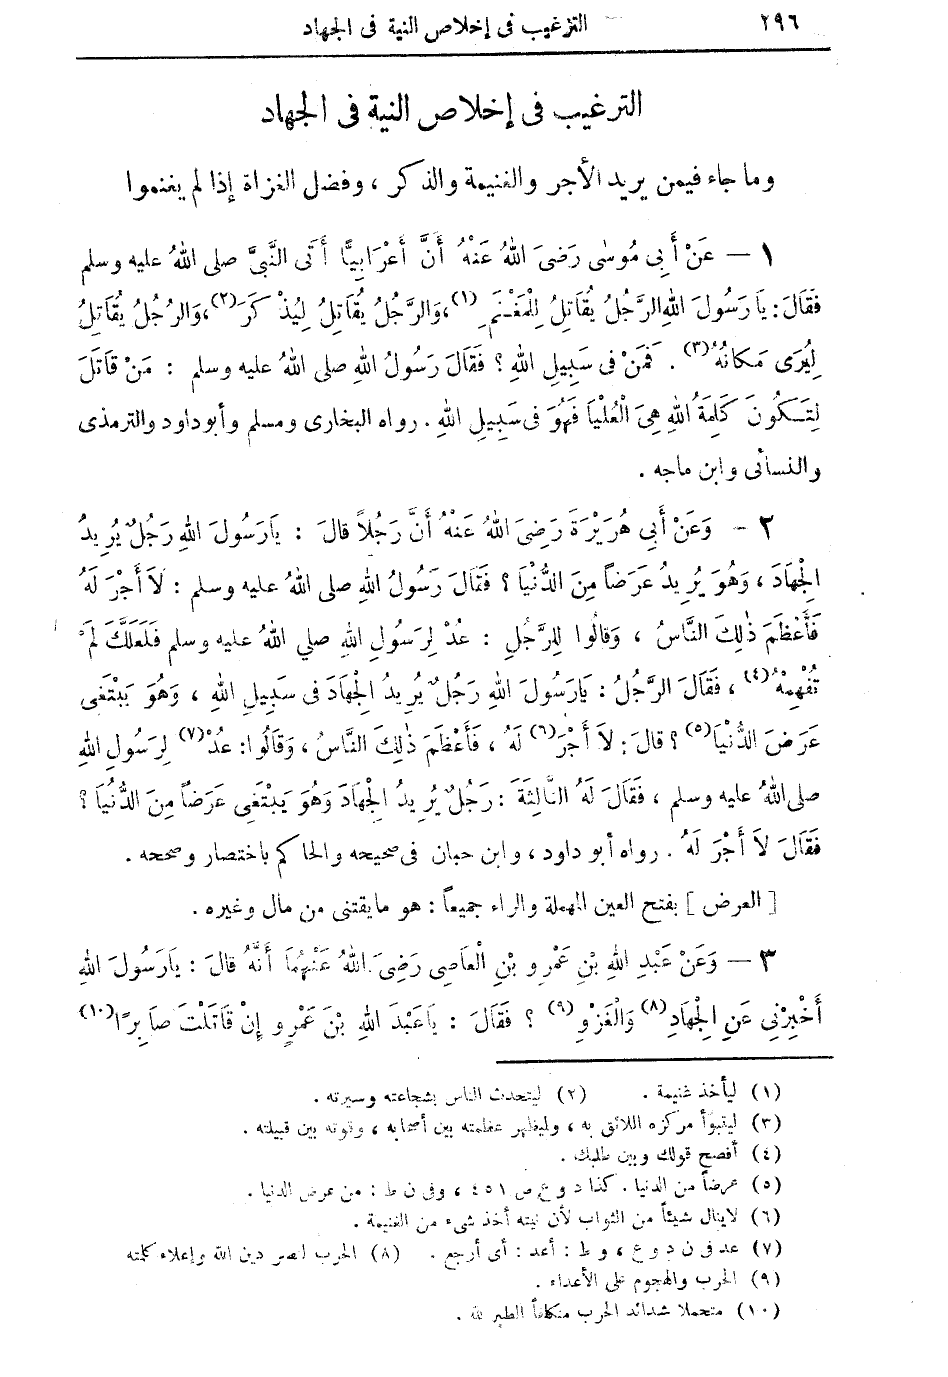 ٢٩٦ الترغيب فى إخلاص النية فى الجهاد
الترغيب فى إخلاص النية فى الجهاد
وما جاء فيمن يريد الأجر والغنيمة والذكر ، وفضل الغزاة إذا لم يغنموا
١ — عَنْ أَبِي مُوسٰى رَضِىَ اللهُ عَنْهُ أَنَّ أَعْرَابِيًّا أَتَى النَّبِيَّ صلى اللهُ عليه وسلم
فَقَالَ : يَا رَسُولَ اللهِ الرَّجُلُ يُقَاتِلُ لِلْمَغْنَمِ (١) ، وَالرَّجُلُ يُقَاتِلُ لِيُذْكَرَ (٢) ، وَالرَّجُلُ يُقَاتِلُ
لِيُرَى مَكَانُهُ (٣) . فَمَنْ فى سَبِيلِ اللهِ ؟ فَقَالَ رَسُولُ اللهِ صلى اللهُ عليه وسلم : مَنْ قَاتَلَ
لِتَكُونَ كَلِمَةُ اللهِ هِىَ الْعُلْيَا فَهُوَ فى سَبِيلِ اللهِ . رواه البخارى ومسلم وأبو داود والترمذى
والنسائى وابن ماجه .
٢ — وَعَنْ أَبِي هُرَيْرَةَ رَضِىَ اللهُ عَنْهُ أَنَّ رَجُلاً قالَ : يَارَسُولَ اللهِ رَجُلٌ يُرِيدُ
الْجِهَادَ ، وَهُوَ يُرِيدُ عَرَضاً مِنَ الدُّنْيَا ؟ فَقَالَ رَسُولُ اللهِ صلى اللهُ عليه وسلم : لاَ أَجْرَ لَهُ
فَأَعْظَمَ ذٰلِكَ النَّاسُ ، وَقَالُوا لِلرَّجُلِ : عُدْ لِرَسُولِ اللهِ صلي اللهُ عليه وسلم فَلَعَلَّكَ لَمْ
تُفْهِمْهُ (٤) ، فَقَالَ الرَّجُلُ : يَارَسُولَ اللهِ رَجُلٌ يُرِيدُ الْجِهَادَ فى سَبِيلِ اللهِ ، وَهُوَ يَبْتَغِى
عَرَضَ الدُّنْيَا (٥) ؟ قالَ : لاَ أَجْرَ (٦) لَهُ ، فَأَعْظَمَ ذٰلِكَ النَّاسُ ، وَقَالُوا : عُدْ (٧) لِرَسُولِ اللهِ
صلى اللهُ عليه وسلم ، فَقَالَ لَهُ الثَّالِثَةَ : رَجُلٌ يُرِيدُ الْجِهَادَ وَهُوَ يَبْتَغِى عَرَضاً مِنَ الدُّنْيَا ؟
فَقَالَ لاَ أَجْرَ لَهُ . رواه أبو داود ، وابن حبان فى صحيحه والحاكم باختصار وصححه .
[ العرض ] بفتح العين المهملة والراء جميعاً : هو ما يقتنى من مال وغيره .
٣ — وَعَنْ عَبْدِ اللهِ بْنِ عَمْرِو بْنِ الْعَاصِى رَضِىَ اللهُ عَنْهُمَا أَنَّهُ قالَ : يَارَسُولَ اللهِ
أَخْبِرْنِي عَنِ الْجِهَادِ (٨) وَالْغَزْوِ (٩) ؟ فَقَالَ : يَاعَبْدَ اللهِ بْنَ عَمْرِو إِنْ قَاتَلْتَ صَابِرًا (١٠)
(١) ليأخذ غنيمة . (٢) ليتحدث الناس بشجاعته وسيرته .
(٣) ليتبوأ مركزه اللائق به ، وليظهر عظمته بين أصحابه ، وقوته بين قبيلته .
(٤) أفصح قولك وبين طلبك .
(٥) عرضاً من الدنيا . كذا د و ع ص ٤٥١ ، وفى ن ط : من عرض الدنيا .
(٦) لاينال شيئاً من الثواب لأن نيته أخذ شىء من الغنيمة .
(٧) عد فى ن د و ع ، و ط : أعد : أى أرجع . (٨) الحرب لنصر دين الله وإعلاء كلمته
(٩) الحرب والهجوم على الأعداء .
(١٠) متحملا شدائد الحرب لله .